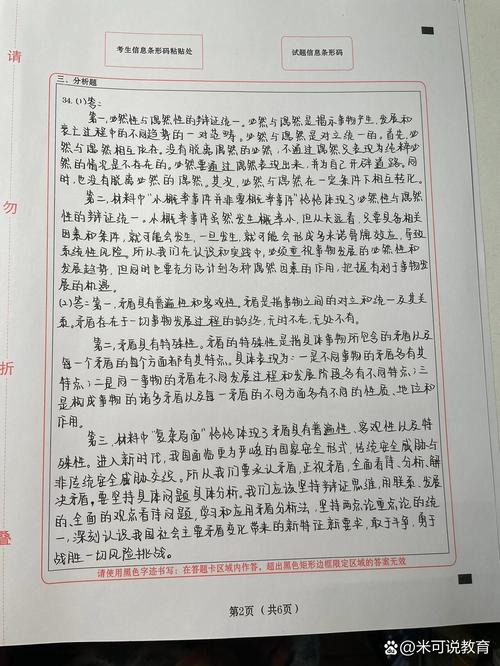 请
勿
折
叠
考生信息条形码粘贴处
试题信息条形码
三、分析题
34. (1)答:
第一,必然性与偶然性的辩证统一。必然与偶然是揭示事物产生、发展和
衰亡过程中的不同趋势的一对范畴。必然与偶然是对立统一的。首先,必
然与偶然相互依存。没有脱离偶然的必然,不通过偶然又表现为纯粹必
然的情况是不存在的。必然要通过偶然表现出来,并为自己开辟道路。同
时,也没有脱离必然的偶然。其次,必然与偶然在一定条件下相互转化。
第二,材料中“小概率事件并非零概率事件”恰恰体现了必然性与偶然
性的辩证统一。小概率事件虽然发生概率小,但从大远看,只要具备相关
因素和条件,就可能会发生,一旦发生,就可能会形成多米诺骨牌效应,导致
系统性风险。所以我们在认识和实践中,必须重视事物发展的必然性和
发展趋势,但同时也要充分估计到各种偶然因素的作用,把握有利于事物发
展的机遇。
(2)答:第一,矛盾具有普遍性和客观性。矛盾是指事物之间的对立和统一及其关
系。矛盾存在于一切事物发展过程的始终,无时不在,无处不有。
第二,矛盾具有特殊性。矛盾的特殊性是指具体事物所包含的矛盾以及
每一个矛盾的每个方面都有其特点。具体表现为:一是不同事物的矛盾各有其
特点;二是同一事物的矛盾在不同发展过程和发展阶段各有不同特点;三
是构成事物的诸多矛盾以及每一矛盾的不同方面各有不同的性质、地位和
作用。
第三,材料中“复杂局面”恰恰体现了矛盾具有普遍性、客观性以及特
殊性。进入新时代,我国面临更为严峻的国家安全形式,传统安全威胁与
非传统安全威胁交织。所以我们要承认矛盾,正视矛盾,全面看待、分析、解
决矛盾。要坚持具体问题具体分析。我们应该坚持辩证思维,用联系、发展
的、全面的观点看待问题,学习和应用矛盾分析法,坚持两点论重点论的统
一,深刻认识我国社会主要矛盾变化带来的新特征新要求,敢于斗争,勇于
战胜一切风险挑战。
请使用黑色字迹书写;在答题卡区域内作答,超出黑色矩形边框限定区域的答案无效
第2页(共6页)
知乎 @米可说教育